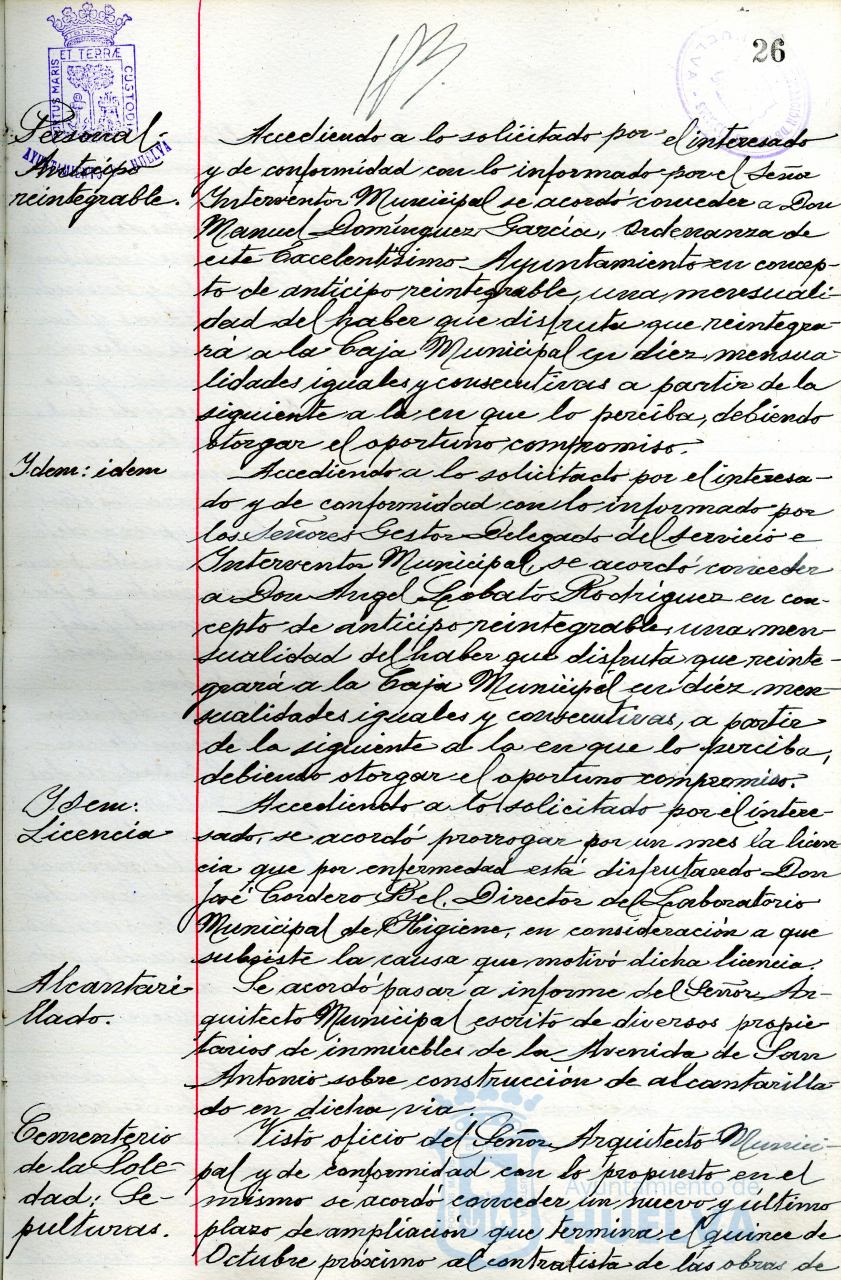 26
PORTUS MARIS
ET TERRÆ
CUSTODIA
AYUNTAMIENTO HUELVA
HUELVA
183
Personal:
Anticipo
reintegrable.
Accediendo a lo solicitado por el interesado
y de conformidad con lo informado por el Señor
Interventor Municipal se acordó conceder a Don
Manuel Domínguez García, Ordenanza de
este Excelentísimo Ayuntamiento en concep-
to de anticipo reintegrable, una mensuali-
dad del haber que disfruta que reintegra-
rá a la Caja Municipal en diéz mensua-
lidades iguales y consecutivas a partir de la
siguiente a la en que lo perciba, debiendo
otorgar el oportuno compromiso.
Idem: idem
Accediendo a lo solicitado por el interesa-
do y de conformidad con lo informado por
los Señores Gestor Delegado del servicio e
Interventor Municipal, se acordó conceder
a Don Angel Lobato Rodríguez en con-
cepto de anticipo reintegrable, una men-
sualidad del haber que disfruta que reinte-
grará a la Caja Municipal en diéz men-
sualidades iguales y consecutivas, a partir
de la siguiente a la en que lo perciba,
debiendo otorgar el oportuno compromiso.
Idem:
Licencia
Accediendo a lo solicitado por el intere-
sado, se acordó prorrogar por un mes la licen-
cia que por enfermedad está disfrutando Don
José Cordero Bel, Director del Laboratorio
Municipal de Higiene, en consideración a que
subsiste la causa que motivó dicha licencia.
Alcantari-
llado.
Se acordó pasar a informe del Señor Ar-
quitecto Municipal escrito de diversos propie-
tarios de inmuebles de la Avenida de San
Antonio sobre construcción de alcantarilla-
do en dicha vía.
Cementerio
de la Sole-
dad: Se-
pulturas.
Visto oficio del Señor Arquitecto Munici-
pal y de conformidad con lo propuesto en el
mismo se acordó conceder un nuevo y último
plazo de ampliación que termina el quince de
Octubre próximo al contratista de las obras de
Ayuntamiento de
HUELVA